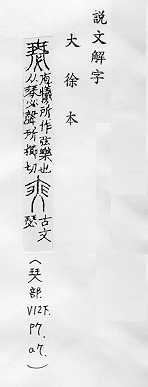 説文解字
大徐本
瑟 庖犧所作弦樂也
从珡必聲所櫛切
古文
瑟
(珡部.
V12下.
P7.
a7.)